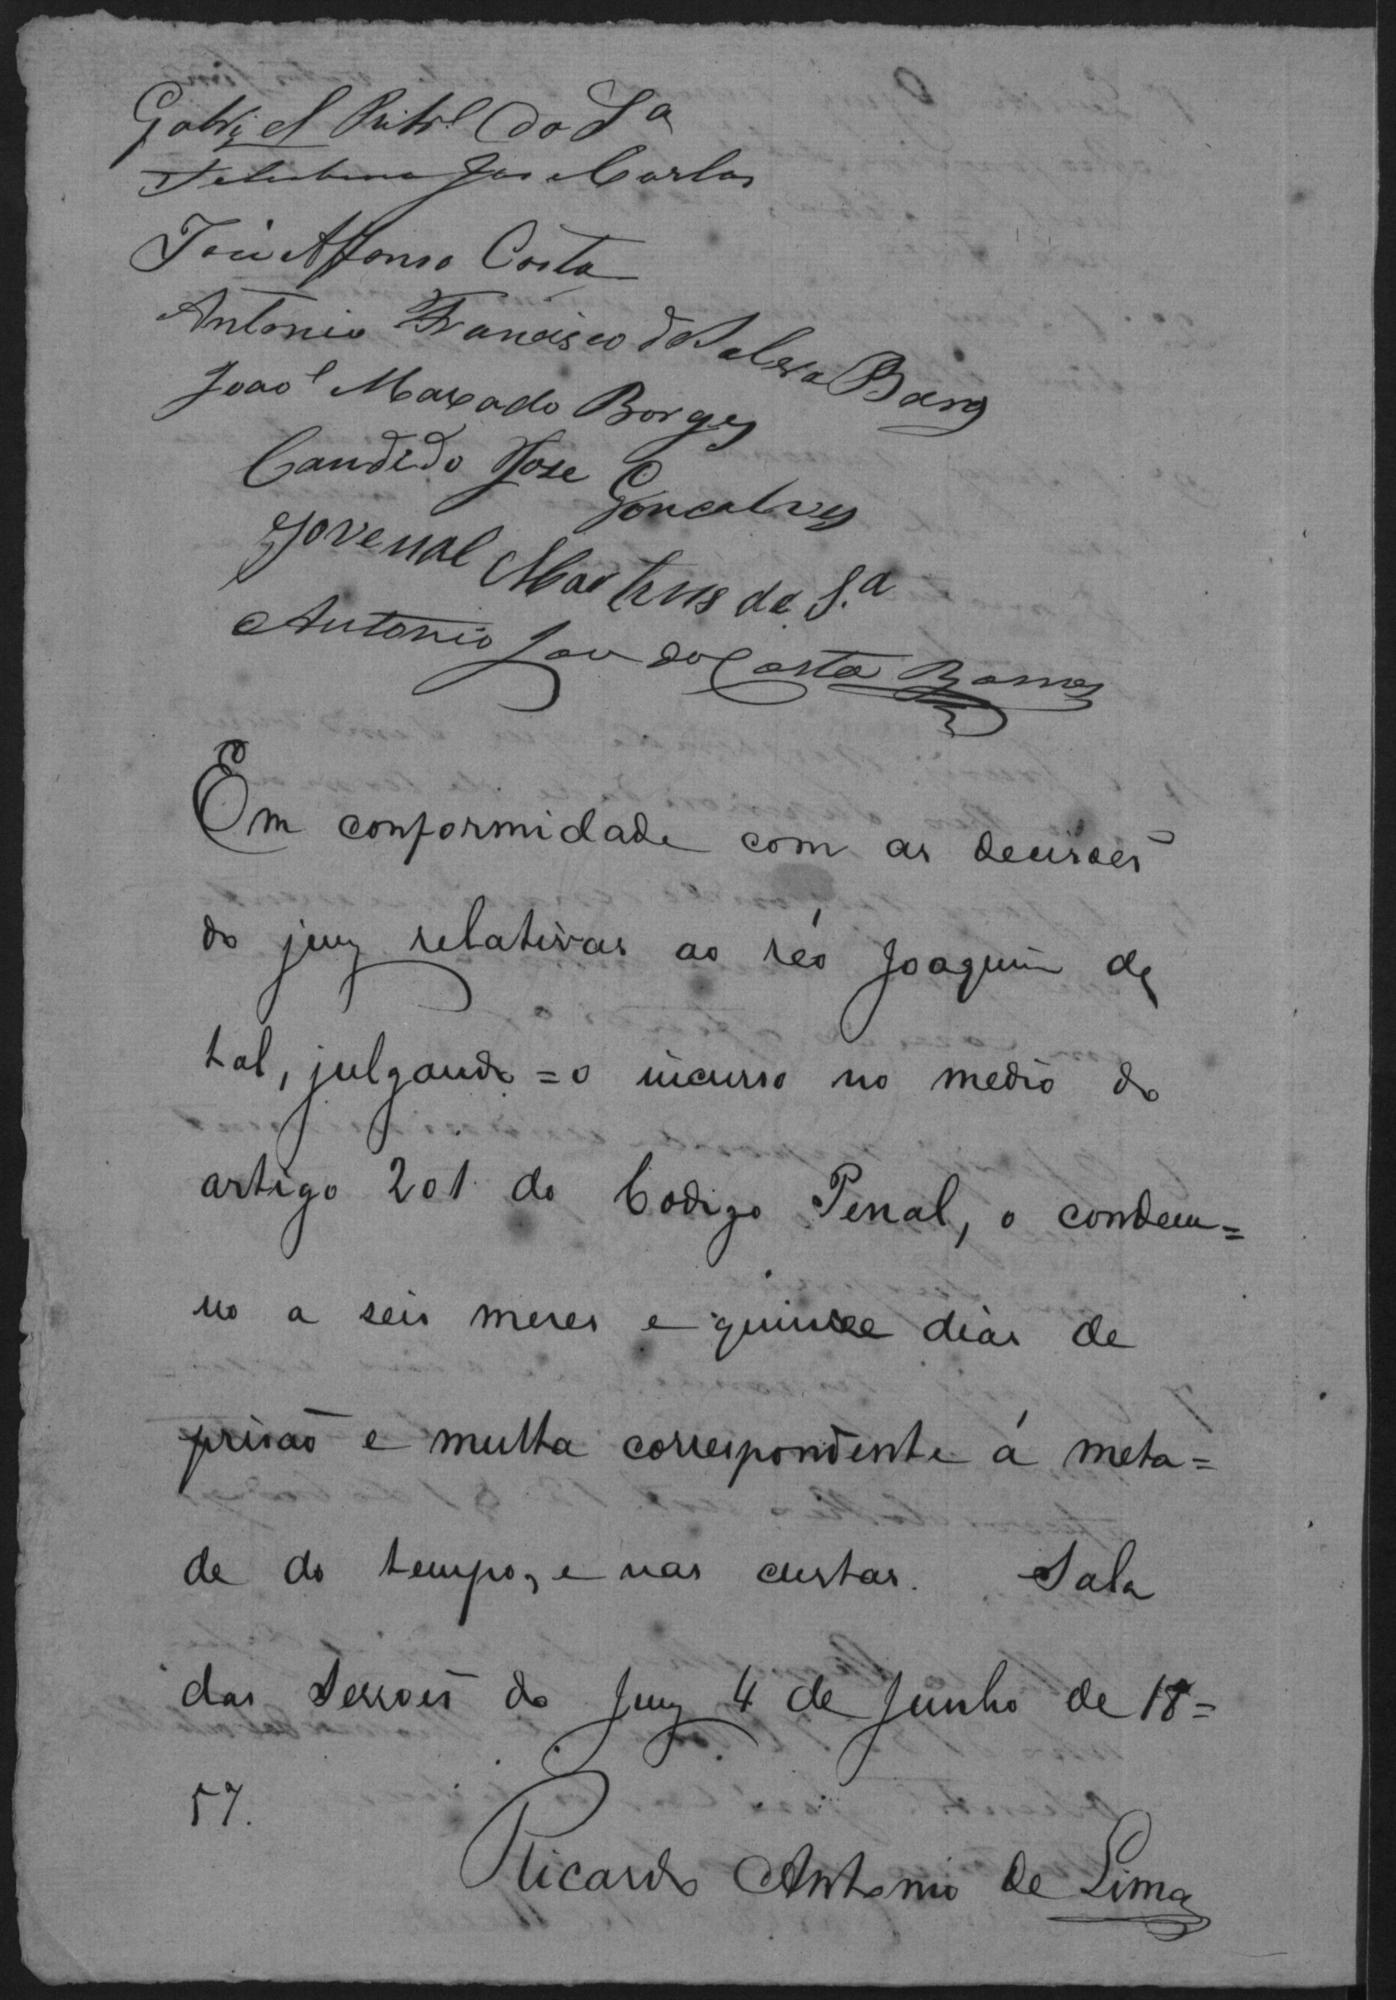 Gabriel da S.ª
José Carlos
José Affonso Costa
Antonio Francisco d
Joaõ Maxado Borges
Candido Jose Goncalves
Jovenal Martins da S.ª
Antonio José da Costa Barros
Em conformidade com as decisões
do jury relativas ao réo Joaquim de
tal, julgando=o incurso no medio do
artigo 201 do Codigo Penal, o condem=
no a seis meses e quinse dias de
prisaõ e multa correspondente á meta=
de do tempo, e nas custas. Sala
das Sessoẽs do Jury 4 de Junho de 18=
57.
Ricardo Antonio de Lima